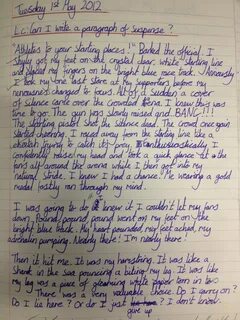 Tuesday 1st May 2012
L.C. Can I write a paragraph of suspense?
"Athletes to your starting places!" Barked the official. I
shyly got my feet on the crystal clear white starting line
and placed my fingers on the bright blue race track. Nervously
I took one last stare at my supporters before my
nervousness changed to focus. All of a sudden a cover
of silence came over the crowded arena. I knew this was
time to go. The gun was slowly raised and.. BANG!!!
The starting pistol shot the silence dead. The crowd once again
started cheering. I raced away from the starting line like a
cheetah trying to catch its prey. Enthusiastically I
confidently raised my head and took a quick glance at the
fans all around the world while I then got into my
natural stride. I knew I had a chance. Me wearing a gold
medal softly ran through my mind.
I was going to do it I knew it I couldn't let my fans
down. Pound, pound, pound went my feet on the
bright blue track. My heart pounded, my feet ached, my
adrenalin pumping. Nearly there! I'm nearly there!
Then it hit me. It was my hamstring. It was like a
shark in the sea pouncing and biting my leg. It was like
my leg was a piece of gleaming white paper torn in two
There was a very valuable choice. Do I carry on?
Do I lie here? Or do I just give up? I don't know.